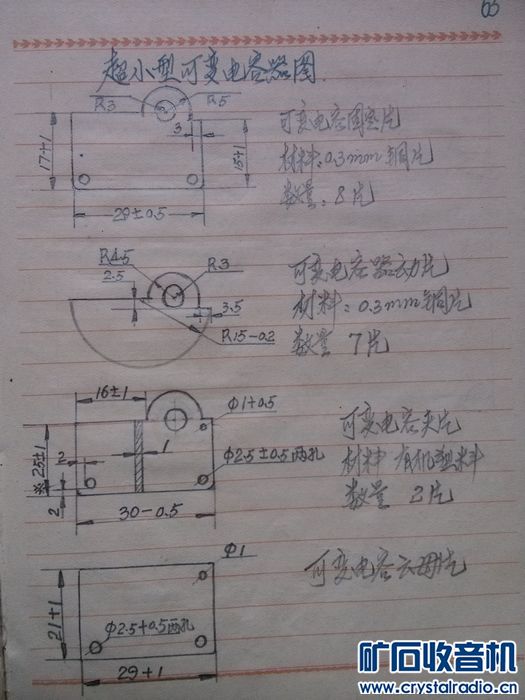 63
超小型可变电容器图
R3
R5
3
17+1
15+1
29±0.5
可变电容固定片
材料:0.3mm铜片
数量:8片
R4.5
2.5
R3
3.5
R15-0.2
可变电容器动片
材料:0.3mm铜片
数量 7片
16±1
Φ1+0.5
2
1
Φ2.5±0.5两孔
※25±1
2
30-0.5
可变电容夹片
材料 有机塑料
数量 2片
Φ1
21+1
Φ2.5+0.5两孔
29+1
可变电容云母片
矿石收音机
www.crystalradio.cn